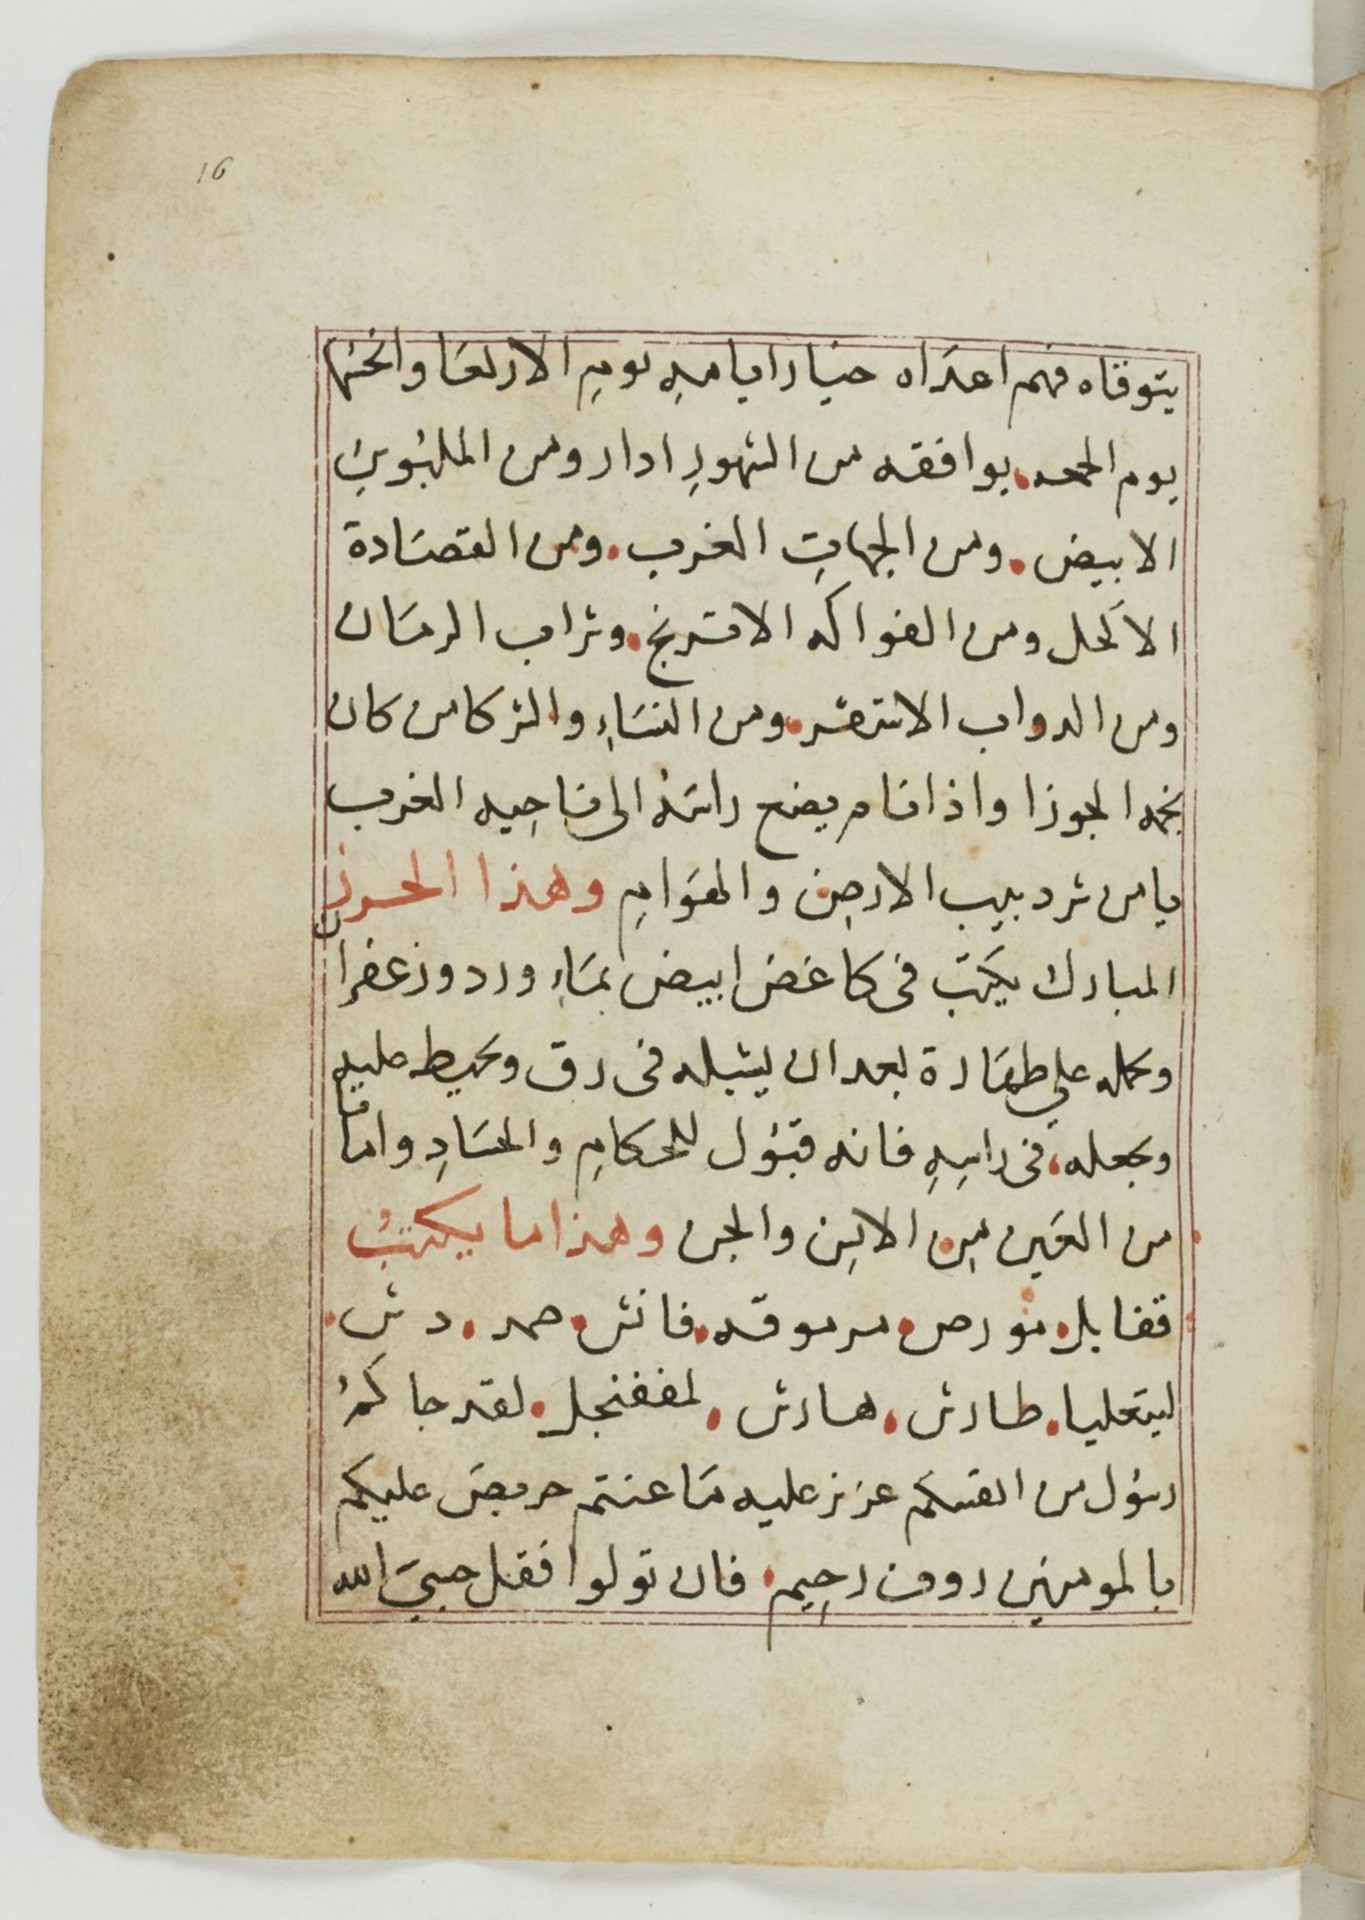 16
يتوقاه فهم اعداه خيار ايامه يوم الاربعا وانحسها
يوم الجمعه يوافقه من الشهور ادار ومن الملبوس
الابيض ومن الجهات الغرب ومن الفصادة
الاكحل ومن الفواكه الاترنج وشراب الرمان
ومن الدواب الاشقر ومن النساء والشركا من كان
نجمه الجوزا واذا نام يضع راسه الى ناحيه الغرب
يامن شر دبيب الارض والهوام وهذا الحرز
المبارك يكتب فى كاغض ابيض بماء ورد وزعفران
وحمله على طهارة بعد ان يشيله فى رق ويخيط عليه
ويجعله فى راسه فانه قبول للحكام والحساد وامانا
من العين من الانس والجن وهذا ما يكتب
دش
طارش هارش لقد جاكم
رسول من انفسكم عزيز عليه ما عنتم حريص عليكم
بالمومنين روف رحيم فان تولوا فقل حسبي الله